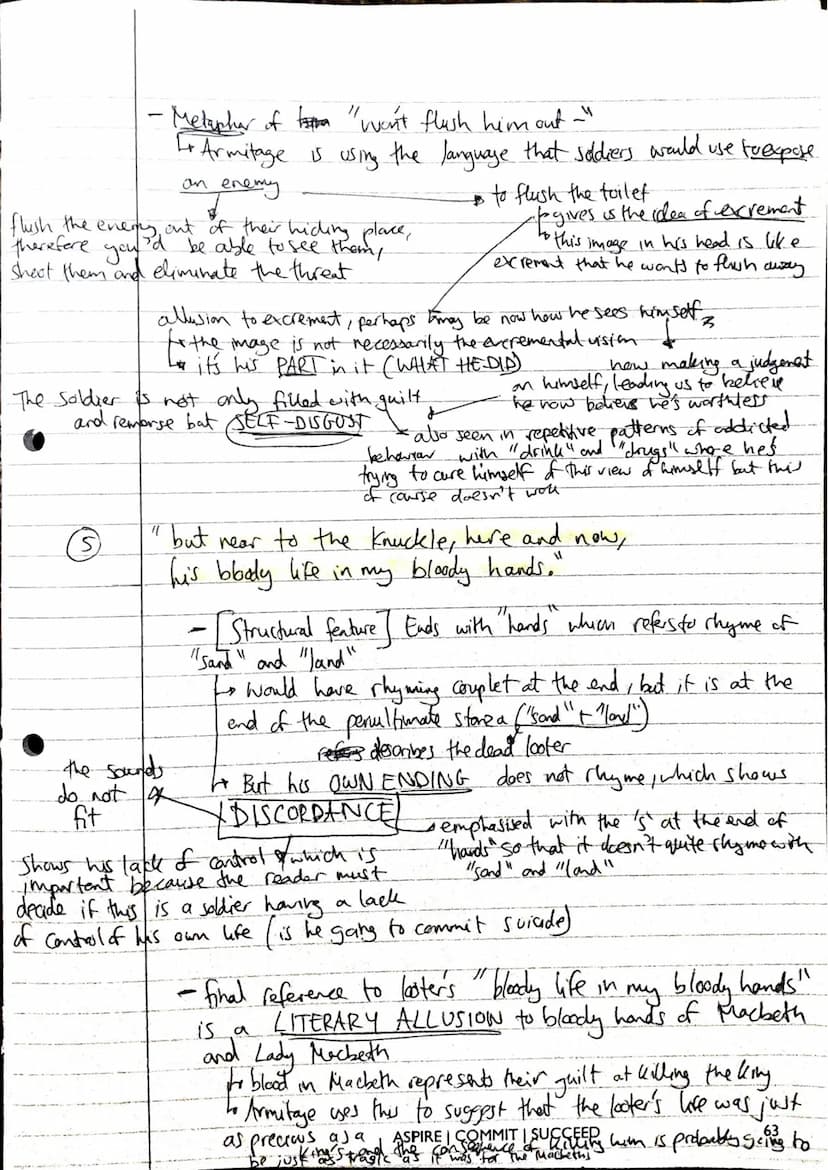 - Metaphor of "won't flush him out -"
↳ Armitage is using the language that soldiers would use to expose
an enemy
→ to flush the toilet
↳ gives us the idea of excrement
↳ this image in his head is like
excrement that he wants to flush away
flush the enemy out of their hiding place,
therefore you'd be able to see them,
shoot them and eliminate the threat
allusion to excrement, perhaps may be now how he sees himself
↳ the image is not necessarily the excremental vision
↳ it's his PART in it (WHAT HE DID)
now making a judgement
on himself, leading us to believe
he now believes he's worthless
The soldier is not only filled with guilt
and remorse but SELF-DISGUST
also seen in repetitive patterns of addicted
behaviour with "drink" and "drugs" where he's
trying to cure himself of this view of himself but this
of course doesn't work
5
"but near to the knuckle, here and now,
his bloody life in my bloody hands."
- [Structural feature] Ends with "hands" which refers to rhyme of
"sand" and "land"
↳ Would have rhyming couplet at the end, but it is at the
end of the penultimate stanza ("sand" + "land")
describes the dead looter
↳ But his OWN ENDING does not rhyme, which shows
DISCORDANCE
the sounds
do not
fit
emphasised with the 's' at the end of
"hands" so that it doesn't quite rhyme with
"sand" and "land"
Shows his lack of control which is
important because the reader must
decide if this is a soldier having a lack
of control of his own life (is he going to commit suicide)
- final reference to looter's "bloody life in my bloody hands"
is a LITERARY ALLUSION to bloody hands of Macbeth
and Lady Macbeth
↳ blood in Macbeth represents their guilt at killing the king
↳ Armitage uses this to suggest that the looter's life was just
as precious as a king's and the consequence of killing him is probably going to
be just as tragic as it was for the Macbeths
ASPIRE | COMMIT | SUCCEED
63